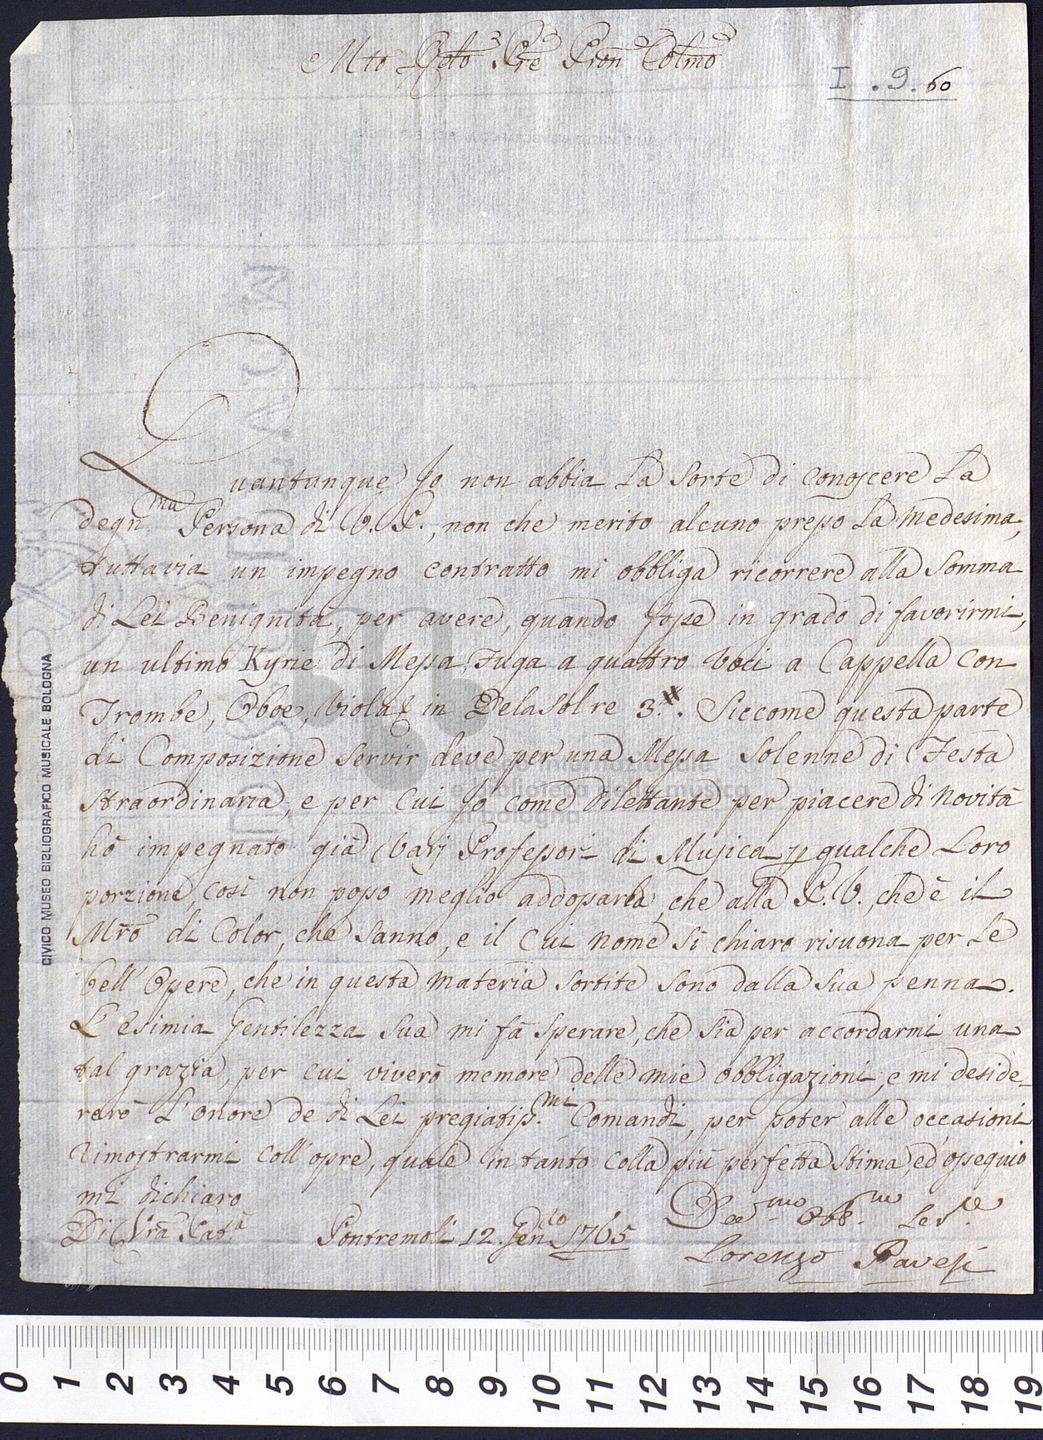 Mto Rdo Pre Pron Colmo
I . 9. 60
Quantunque Jo non abbia La Sorte di conoscere La
degn.ma Persona di V. P., non che merito alcuno presso La Medesima,
tuttavia un impegno contratto mi obbliga ricorrere alla Somma
di Lei Benignità, per avere, quando fosse in grado di favorirmi,
un ultimo Kyrie di Messa Fuga a quattro Voci a Cappella con
Trombe, Oboe, Viola in DelaSolre 3.ª. Siccome questa parte
di Composizione Servir deve per una Messa Solenne di Festa
straordinaria, e per cui Jo come Dilettante per piacere di Novità
hò impegnato già Varj Professori di Musica p qualche Loro
porzione, così non posso meglio addossarla, che alla P. V., che è il
Mro di Color, che Sanno, e il cui Nome sì chiaro risuona per Le
bell' Opere, che in questa materia Sortite Sono dalla Sua penna.
L'Esimia Gentilezza Sua mi fà Sperare, che Sia per accordarmi una
tal grazia, per cui viverò memore delle mie Obbligazioni, e mi deside-
rerò L'onore de di Lei pregiatiss.mi Comandi, per poter alle occasioni
rimostrarmi coll' opre, quale in tanto colla più perfetta Stima, ed ossequio
mi dichiaro
Di Vra Pat.à Pontremoli 12. Gen.io 1765 Dev.mo Obb.mo Ser.e
Lorenzo Pavesi
CIVICO MUSEO BIBLIOGRAFICO MUSICALE BOLOGNA
e biblioteca della musica
di bologna
0 1 2 3 4 5 6 7 8 9 10 11 12 13 14 15 16 17 18 19